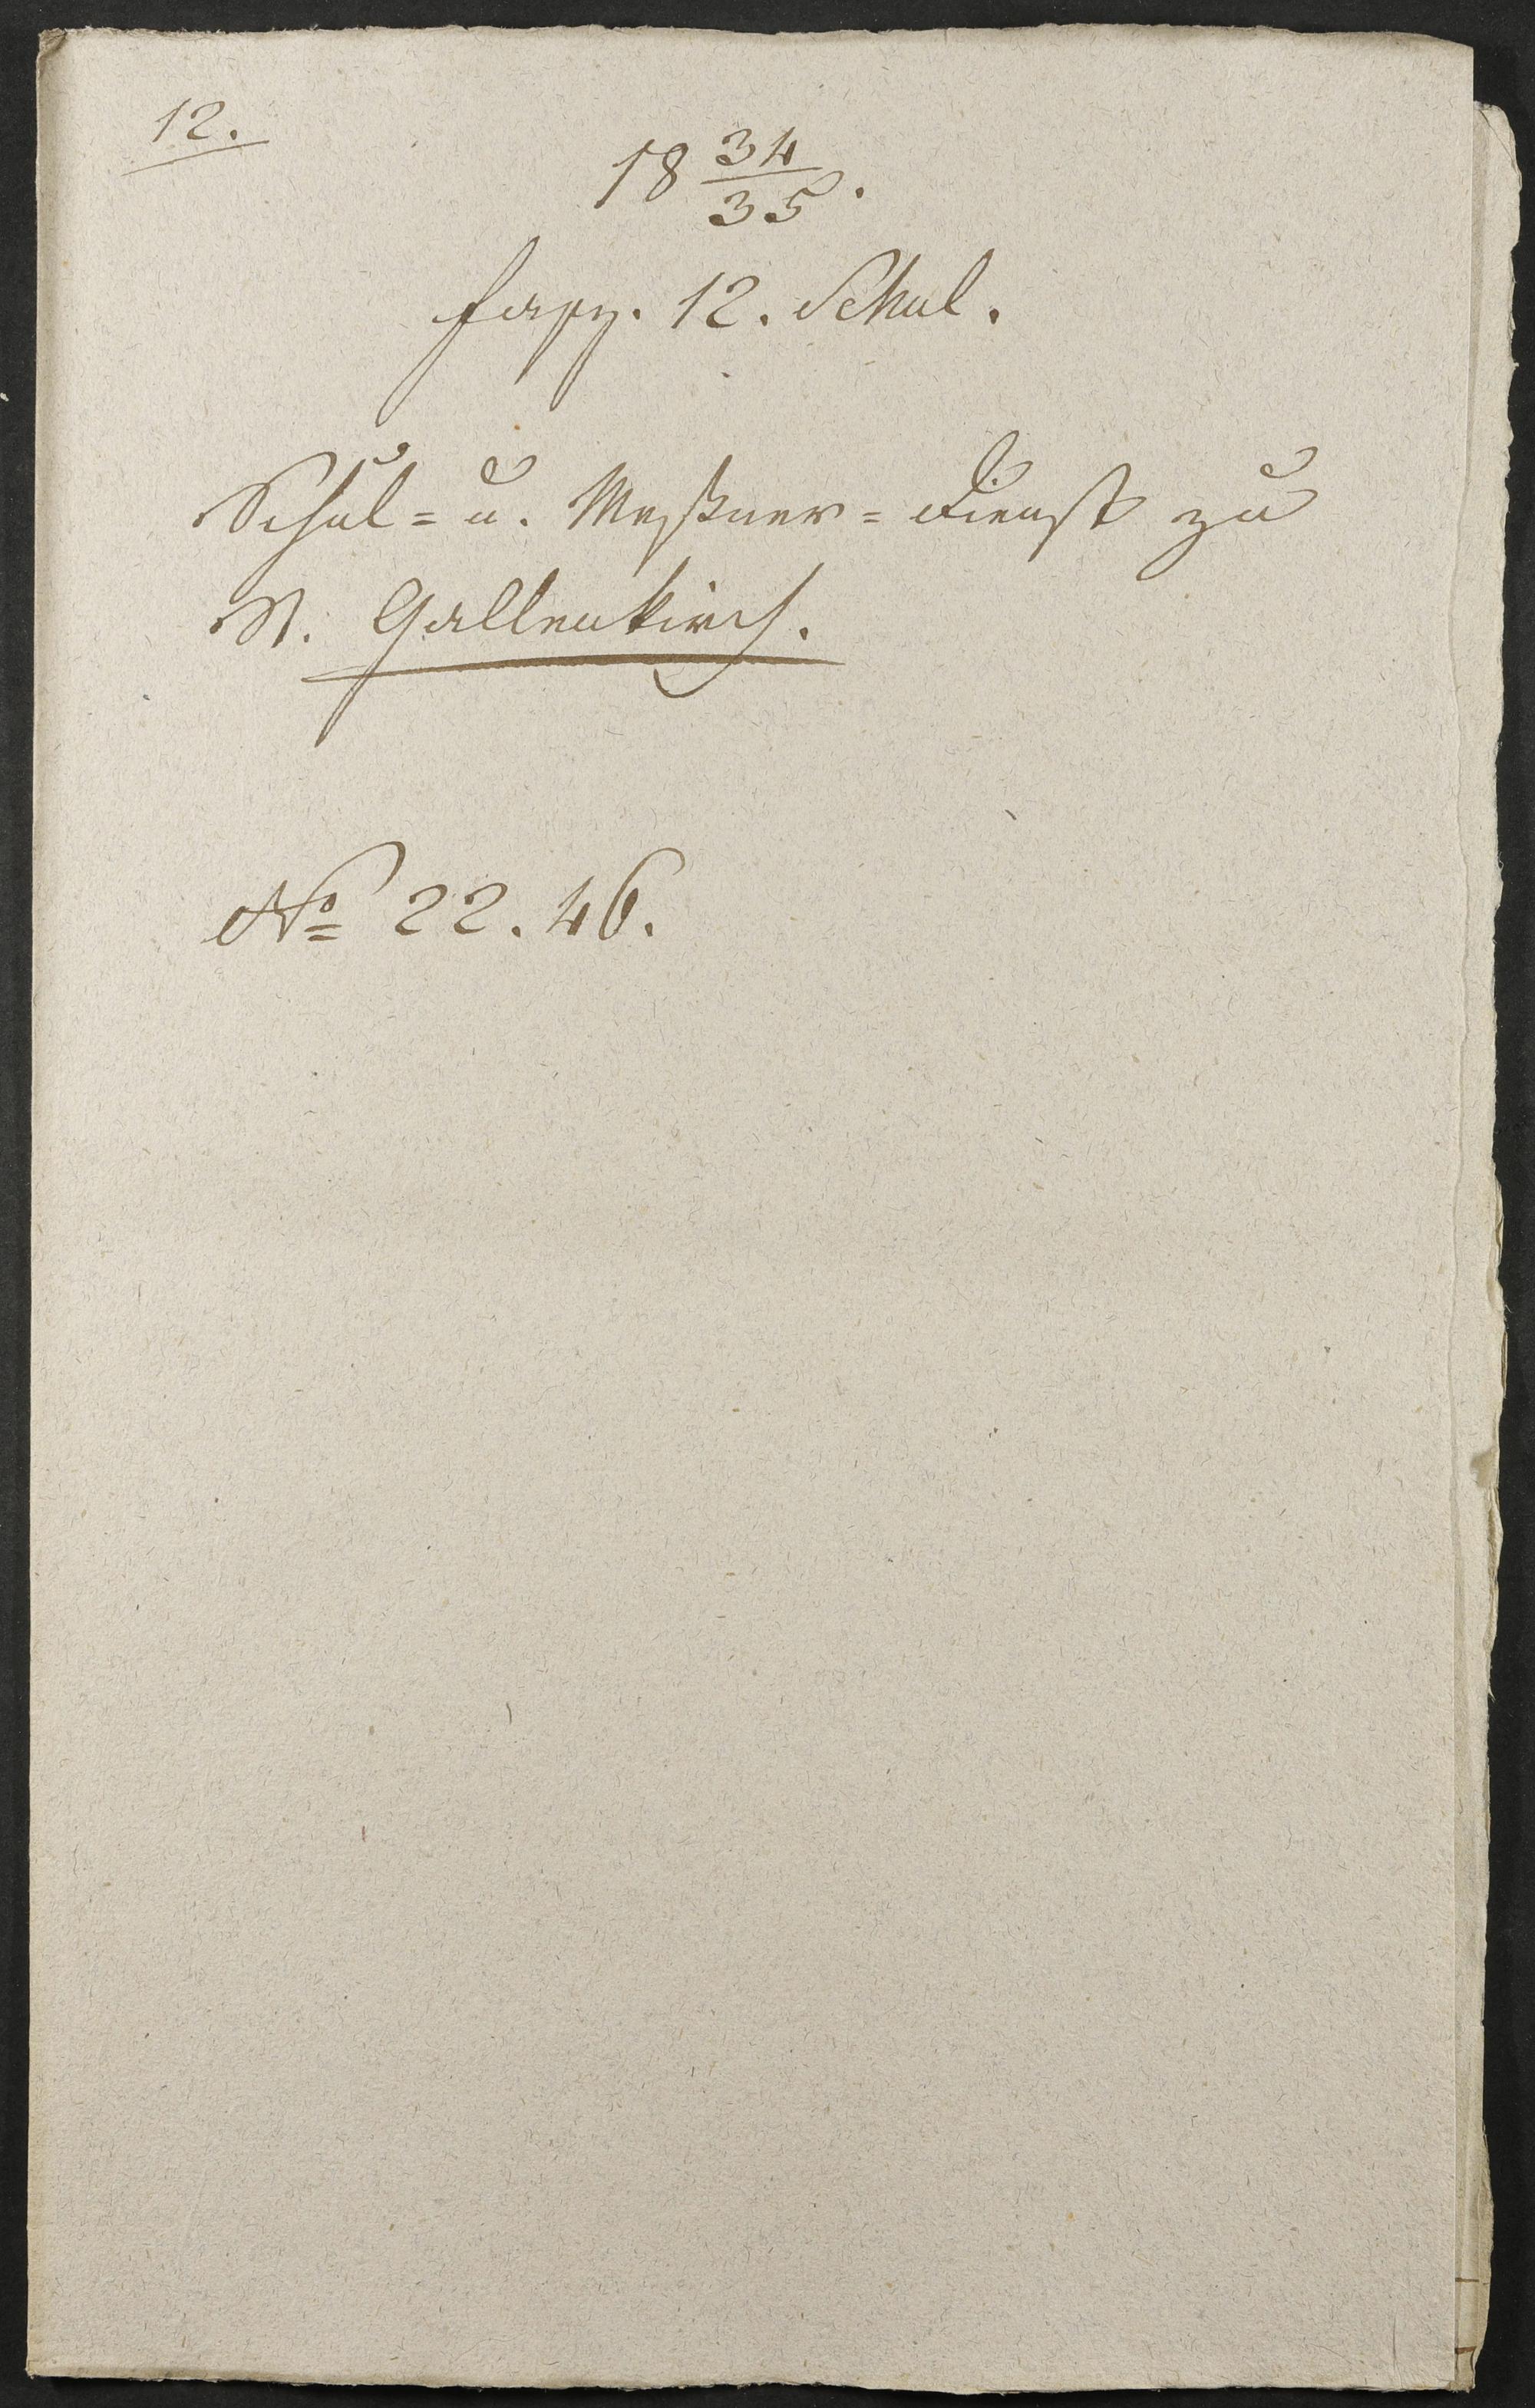 12.
18 34/35.
fasz. 12. Schul.
Schul= u. Meßner=dienst zu
St. Gallenkirch.
No 22. 46.